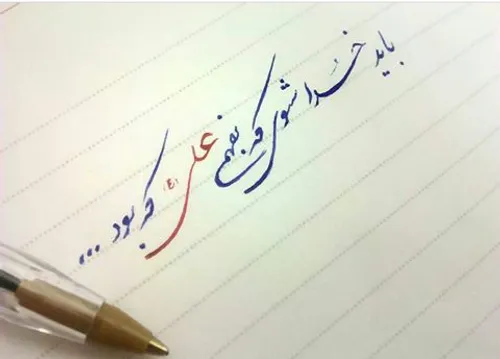 باید خدا شوی که بفهمی علی (ع) که بود ...